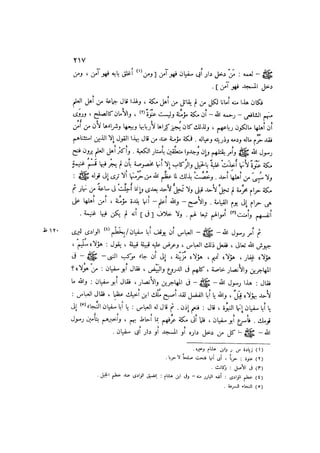 ٢١٧
ﷺ - لعمه : مَنْ دخل دار أبى سفيان فهو آمن [ ومن (١) أغلق بابه فهو آمن ، ومن
دخل المسجد فهو آمن ] .
فكان هذا منه أمانًا لكل من لم يقاتل من أهل مكة ، ولهذا قال جماعة من أهل العلم
منهم الشافعى - رحمه الله - أن مكة مؤمنة وليست عنوة (٢) ، والأمان كالصلح ، وروى
أن أهلها مالكون رباعهم ، ولذلك كان يجيز كراها لأربابها وبيعها وشراءها لأن من أمن
فقد حرم ماله ودمه وذريته وعياله . فمكة مؤمنة عند من قال بهذا القول إلا الذين استثناهم
رسول الله ﷺ وأمر بقتلهم وإن وجدوا متعلقين بأستار الكعبة . وأكثر أهل العلم يرون فتح
مكة عنوة لأنها أخذت غلبة بالخيل والركاب إلا أنها مخصوصة بأن لم يجر فيها قسم غنيمة
ولا سبى من أهلها أحد . وخصت بذلك لما عظم الله من حرمتها ألا ترى إلى قوله ﷺ :
مكة حرام محرمة لم تحل لأحد قبلى ولا تحل لأحد بعدى وإنما أحلت لى ساعة من نهار ثم
هى حرام إلى يوم القيامة . والأصح - والله أعلم - أنها بلدة مؤمنة ، أمن أهلها على
أنفسهم وأمنت (٣) أموالهم تبعا لهم . ولا خلاف [ فى ] أنه لم يكن فيها غنيمة .
ثم أمر رسول الله - ﷺ - العباس أن يوقف أبا سفيان بخطم (٤) الوادى ليرى ١٢٠ ظ
جيوش الله تعالى ، ففعل ذلك العباس ، وعرض عليه قبيلة قبيلة ، يقول : هؤلاء سليم ،
هؤلاء غفار ، هؤلاء تميم ، هؤلاء مزينة ، إلى أن جاء موكب النبى - ﷺ - فى
المهاجرين والأنصار خاصة ، كلهم فى الدروع والبيض ، فقال أبو سفيان : من هؤلاء ؟
فقال : هذا رسول الله - ﷺ - فى المهاجرين والأنصار ، فقال أبو سفيان : والله ما
لأحد بهؤلاء قبل ، والله يا أبا الفضل لقد أصبح ملك ابن أخيك عظيما ، فقال العباس :
يا أبا سفيان إنها النبوة ، قال : فنعم إذن . ثم قال له العباس : يا أبا سفيان النجاء (٥) إلى
قومك . فأسرع أبو سفيان ، فلما أتى مكة عرفهم بما أحاط بهم ، وأخبرهم بتأمين رسول
الله - ﷺ - كل من دخل داره أو المسجد أو دار أبى سفيان .
(١) زيادة من ر وابن هشام وغيره .
(٢) عنوة : حربًا ، أى أنها فتحت صلحا لا حربا .
(٣) فى الأصل : وكانت .